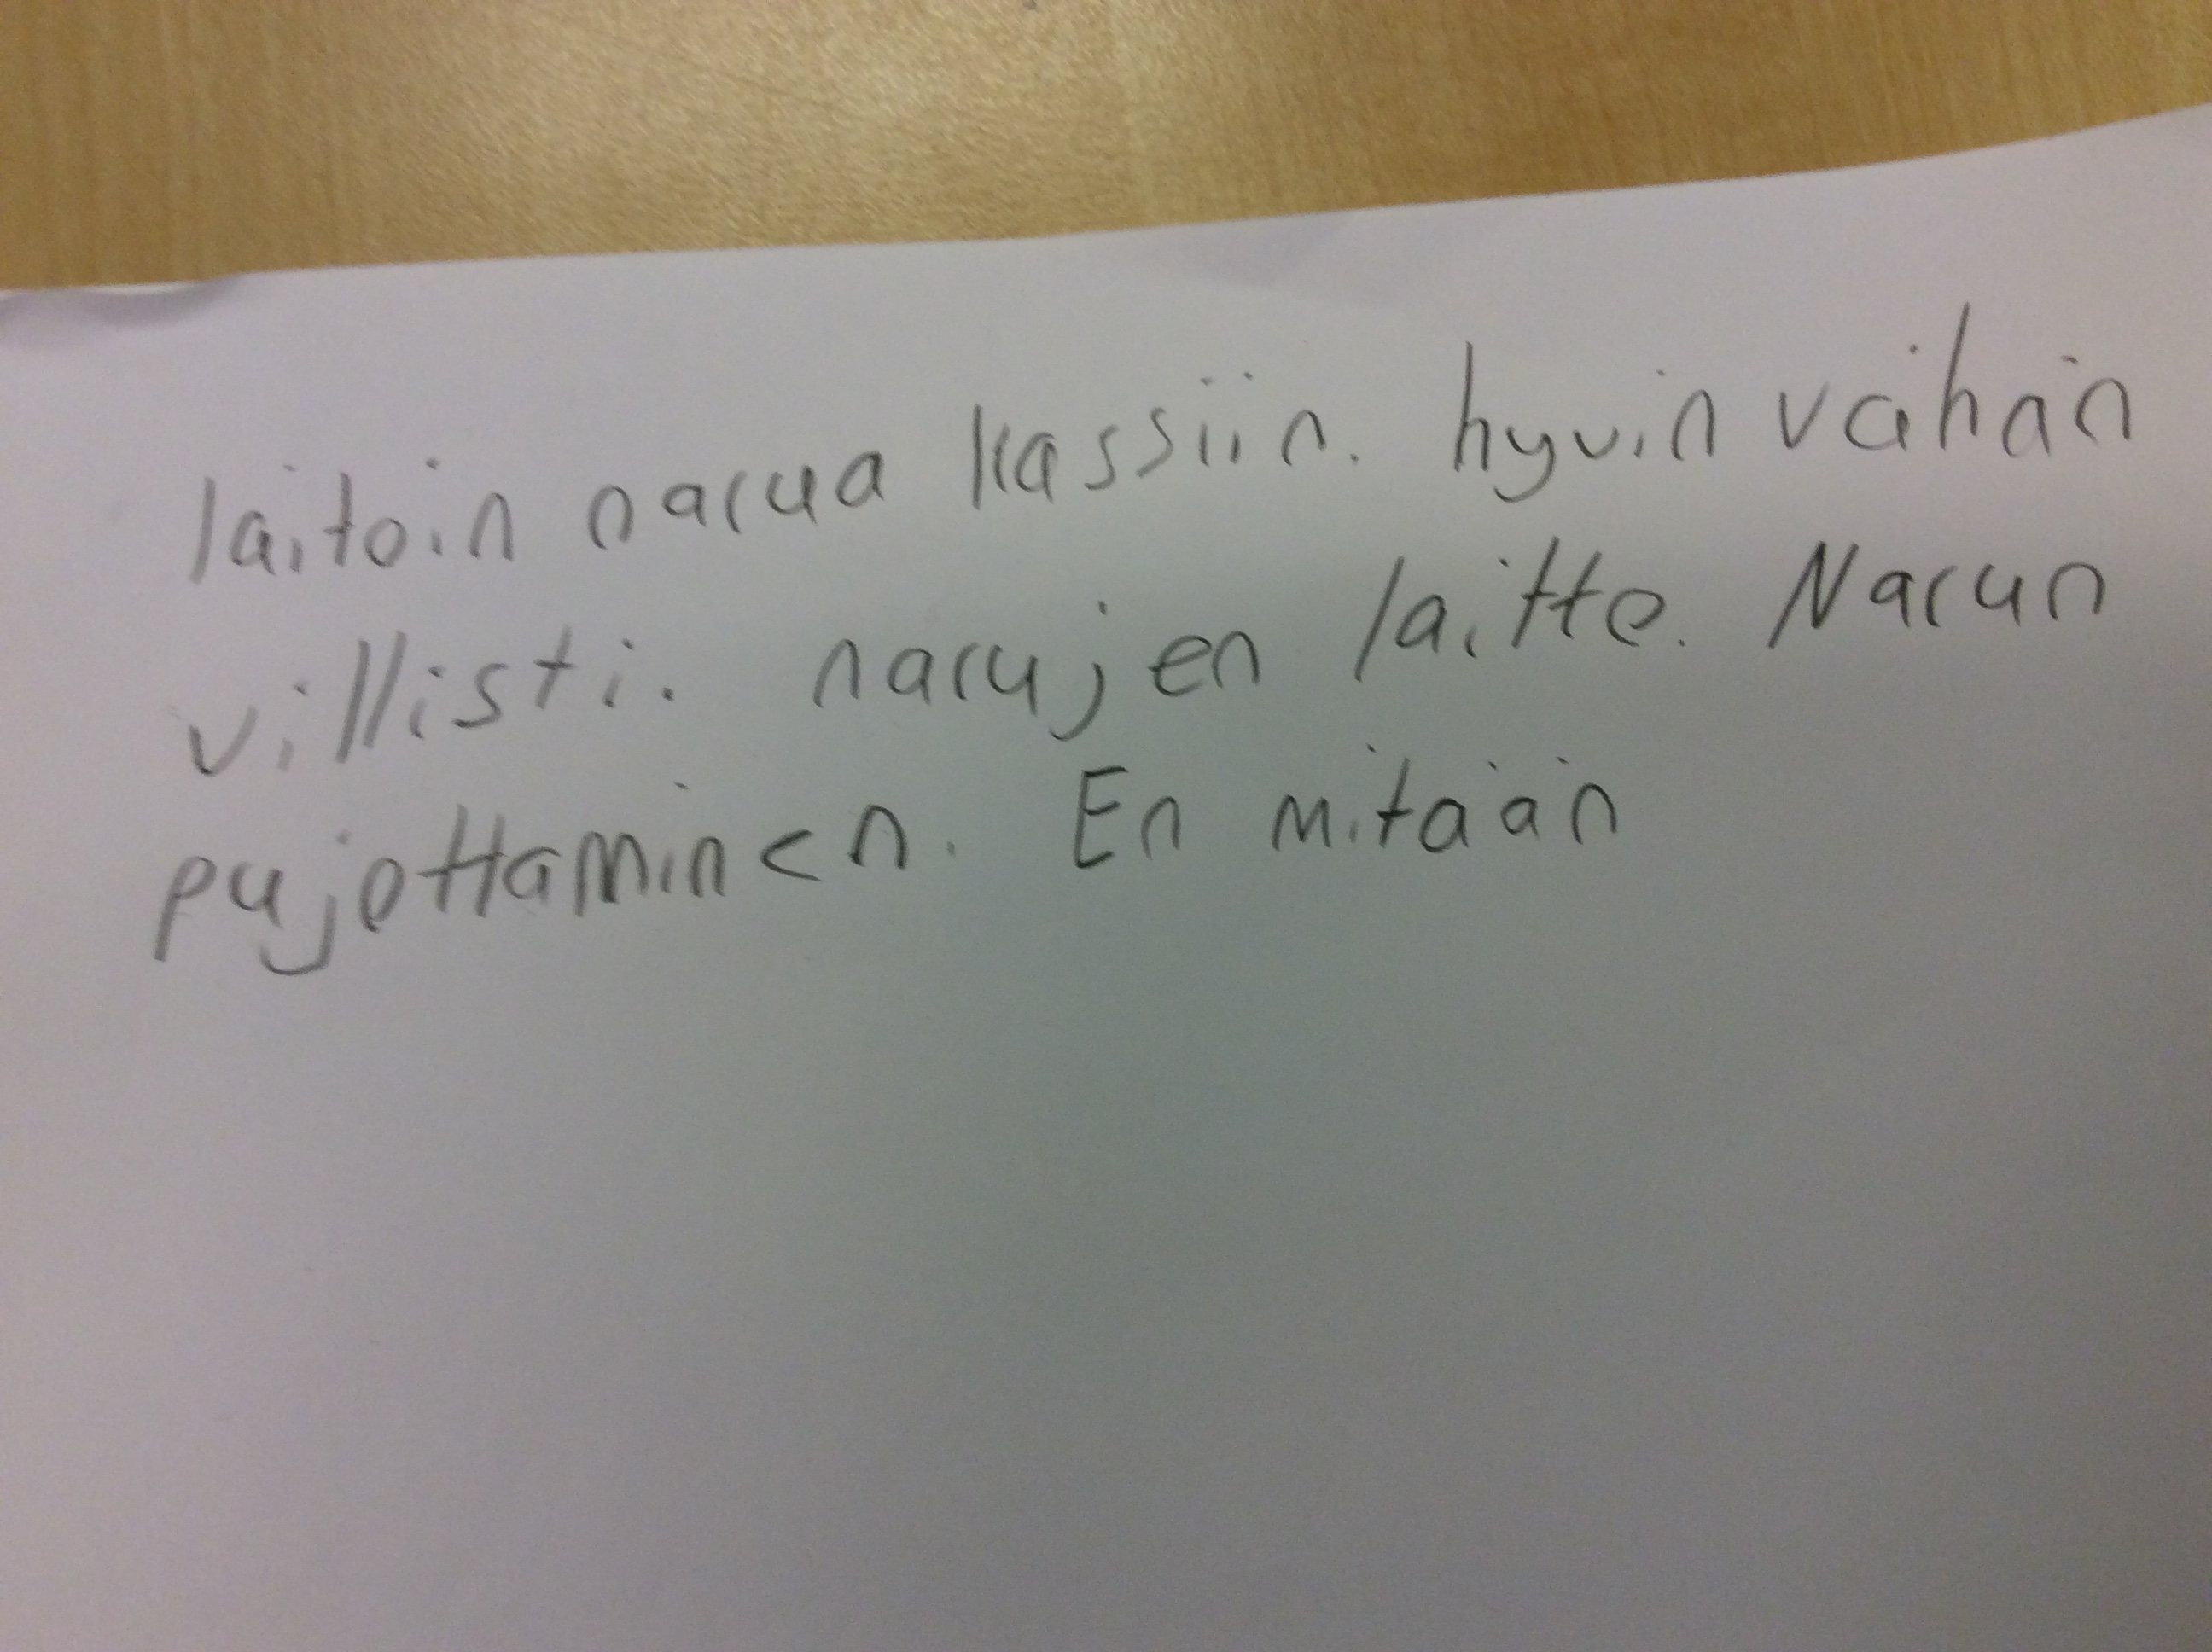 laitoin narua kassiin. hyvin vähän
villisti. narujen laitto. Narun
pujottaminen. En mitään